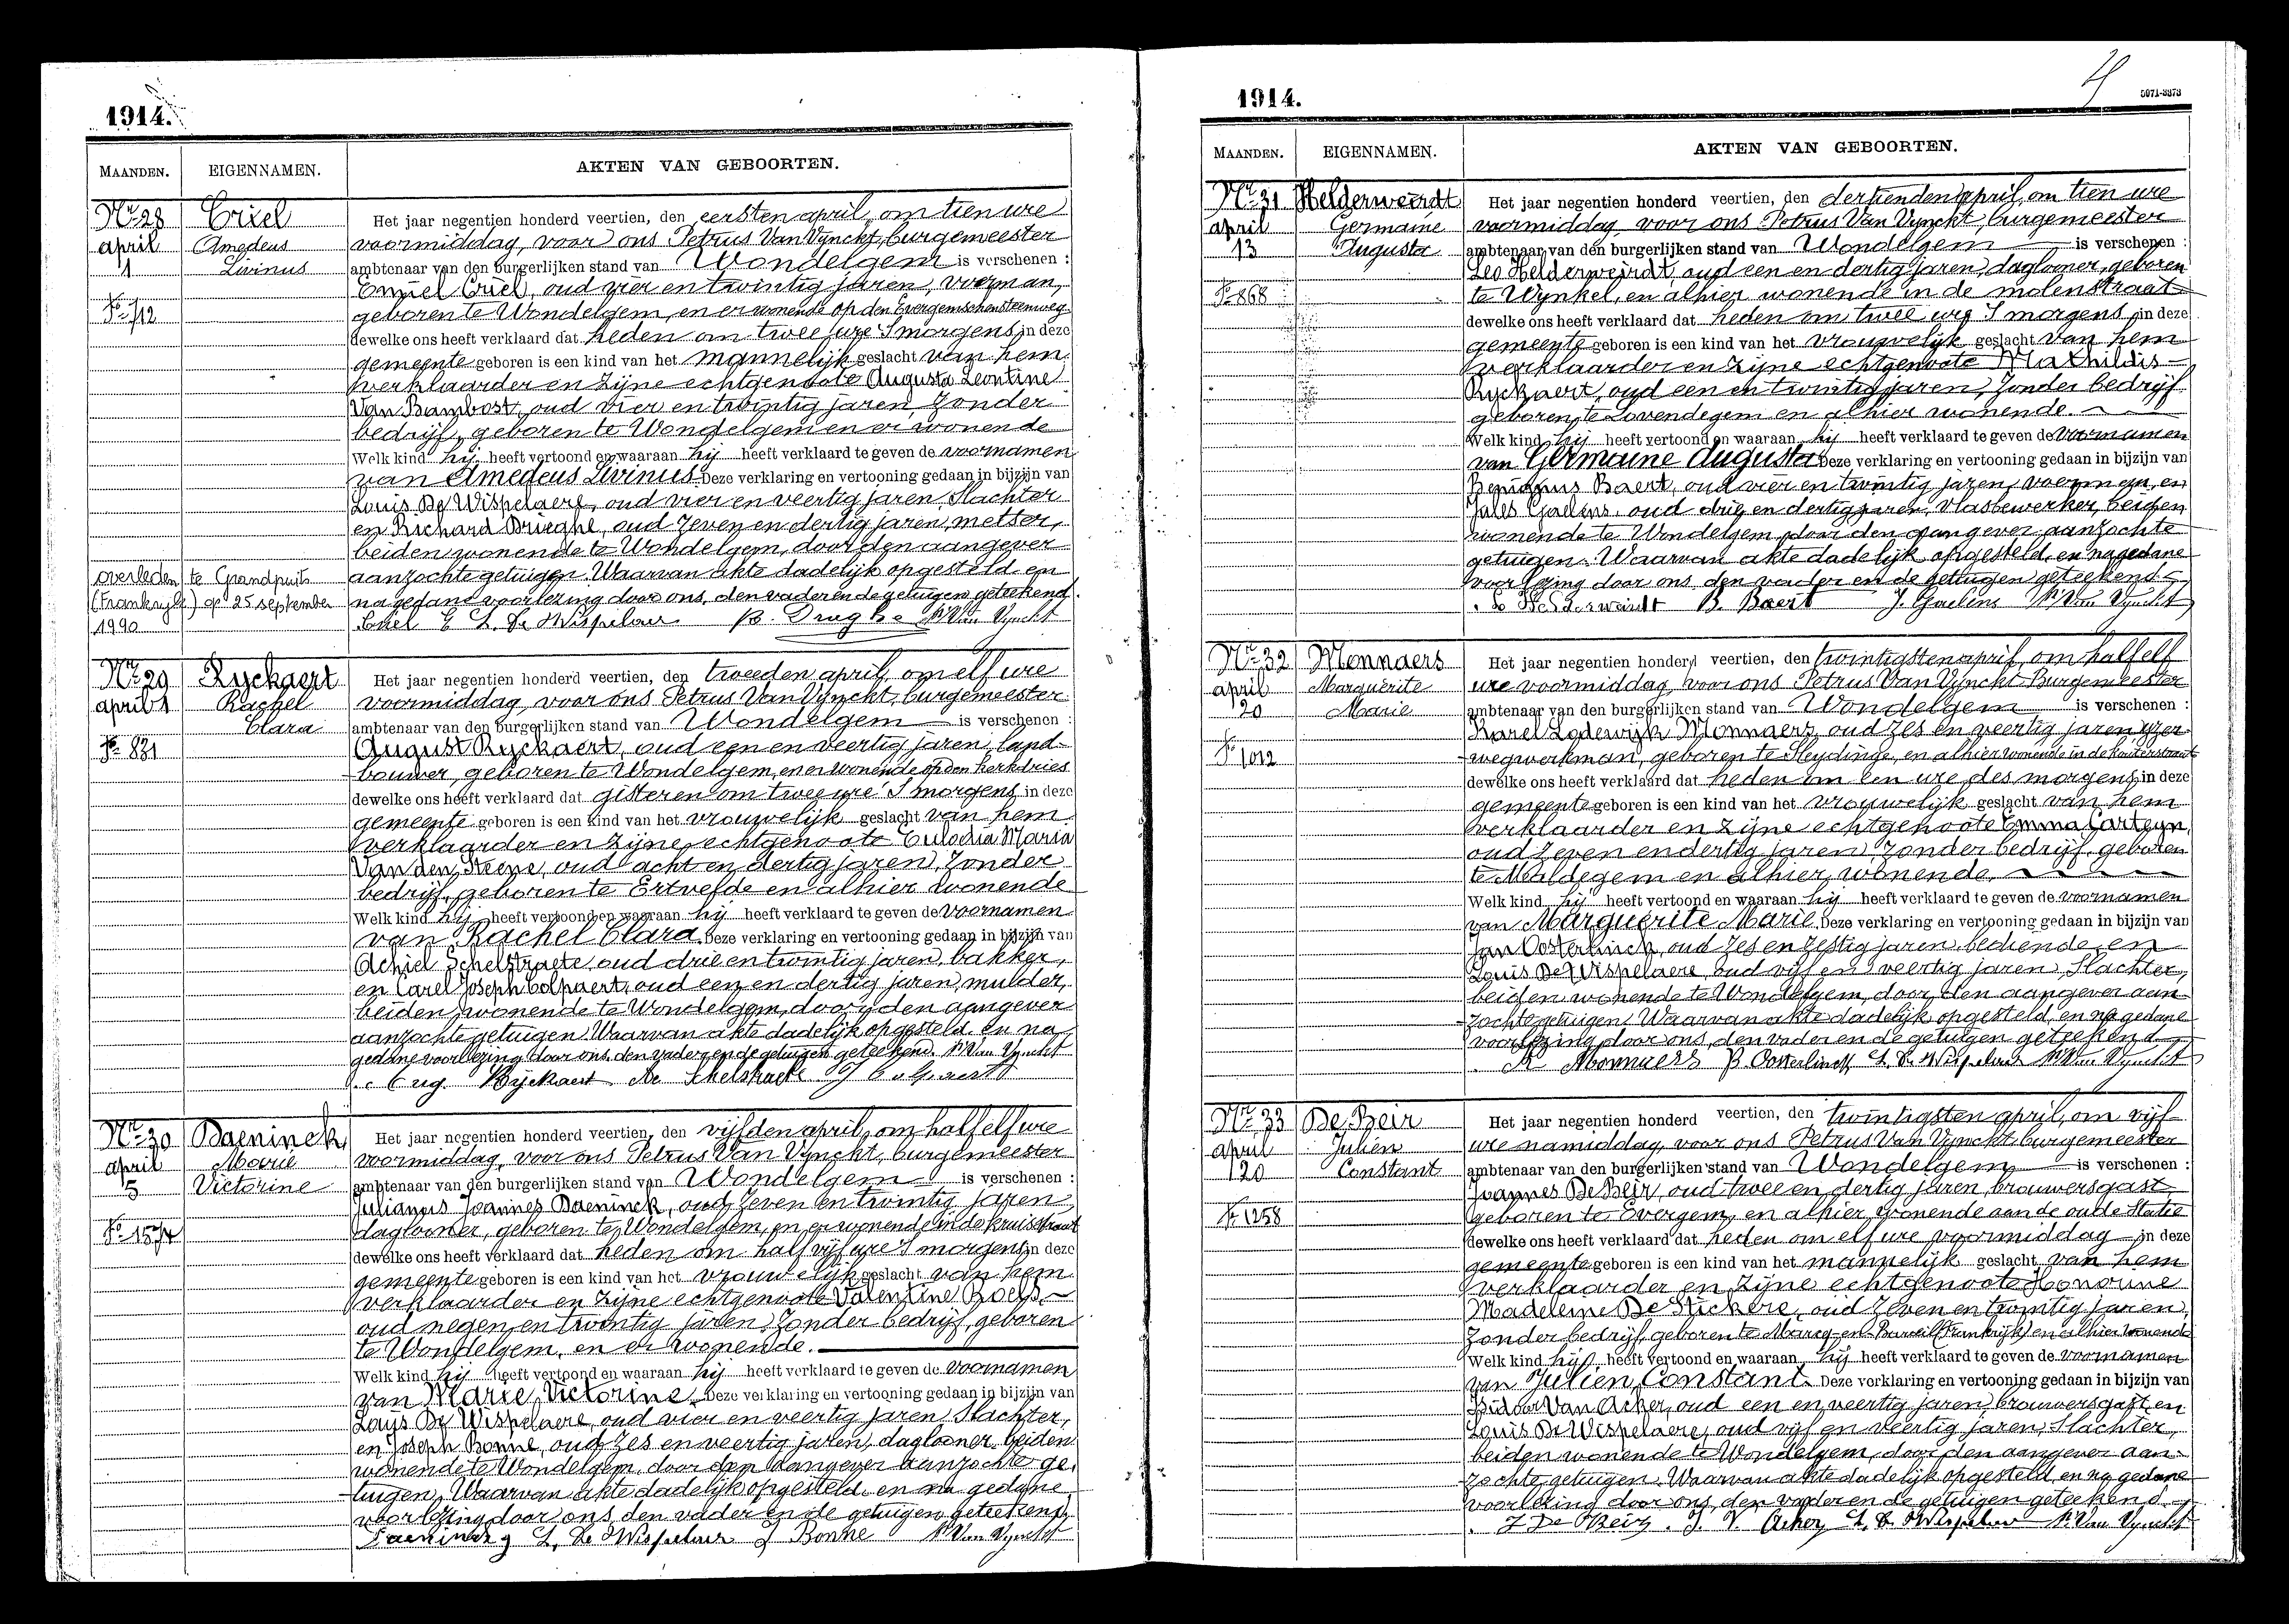 1914.
MAANDEN. EIGENNAMEN. AKTEN VAN GEBOORTEN.
Nr. 28 Criel Het jaar negentien honderd veertien, den eersten april, om tien ure
april Amedeus voormiddag, voor ons Petrus Van Vynckt, burgemeester
1 Livinus ambtenaar van den burgerlijken stand van Wondelgem is verschenen :
Emiel Criel, oud vier en twintig jaren, voerman,
No 712 geboren te Wondelgem, en er wonende op den Evergemschensteenweg
dewelke ons heeft verklaard dat heden om twee ure 's morgens, in deze
gemeente geboren is een kind van het mannelijk geslacht van hem
verklaarder en zijne echtgenoote Augusta Leontine
Van Bambost, oud vier en twintig jaren zonder
bedrijf, geboren te Wondelgem en er wonende
Welk kind hij heeft vertoond en waaraan hij heeft verklaard te geven de voornamen
van Amedeus Livinus. Deze verklaring en vertooning gedaan in bijzijn van
Louis De Wispelaere, oud vier en veertig jaren, slachter
en Richard Brieghe, oud zeven en dertig jaren, metser,
beiden wonende te Wondelgem, door den aangever
overleden te Grandpuits aanzochte getuigen. Waarvan akte dadelijk opgesteld en
(Frankrijk) op 25 september na gedane voorlezing door ons, den vader en de getuigen geteekend.
1990 Criel E L. De Wispelaere P. Van Vynckt
Nr. 29 Ryckaert Het jaar negentien honderd veertien, den tweeden april, om elf ure
april 1 Rachel voormiddag, voor ons Petrus Van Vynckt, burgemeester
Clara ambtenaar van den burgerlijken stand van Wondelgem is verschenen :
No 831 August Ryckaert, oud een en veertig jaren, land-
bouwer, geboren te Wondelgem, en er wonende op den kerkdries
dewelke ons heeft verklaard dat gisteren om twee ure 's morgens in deze
gemeente geboren is een kind van het vrouwelijk geslacht van hem
verklaarder en zijne echtgenoote Eulodia Maria
Van den Steene, oud acht en dertig jaren, zonder
bedrijf, geboren te Ertvelde en alhier wonende
Welk kind hij heeft vertoond en waaraan hij heeft verklaard te geven de voornamen
van Rachel Clara. Deze verklaring en vertooning gedaan in bijzijn van
Achiel Schelstraete, oud drie en twintig jaren, bakker,
en Carel Joseph Colpaert, oud een en dertig jaren, mulder,
beiden wonende te Wondelgem, door den aangever
aanzochte getuigen. Waarvan akte dadelijk opgesteld en na
gedane voorlezing door ons, den vader en de getuigen geteekend. P. Van Vynckt
Aug. Ryckaert Ac Schelstraete J Colpaert
Nr. 30 Daeninck Het jaar negentien honderd veertien, den vijfden april, om half elf ure
april Marie voormiddag, voor ons Petrus Van Vynckt, burgemeester
5 Victorine ambtenaar van den burgerlijken stand van Wondelgem is verschenen :
Julianus Joannes Daeninck, oud zeven en twintig jaren
No 1574 daglooner, geboren te Wondelgem, en er wonende in de kruisstraat
dewelke ons heeft verklaard dat heden om half vijf ure 's morgens in deze
gemeente geboren is een kind van het vrouwelijk geslacht van hem
verklaarder en zijne echtgenoote Valentine Roels,
oud negen en twintig jaren, zonder bedrijf, geboren
te Wondelgem, en er wonende.
Welk kind hij heeft vertoond en waaraan hij heeft verklaard te geven de voornamen
van Marie Victorine. Deze verklaring en vertooning gedaan in bijzijn van
Louis De Wispelaere, oud vier en veertig jaren, slachter,
en Joseph Bonne, oud zes en veertig jaren, daglooner beiden
wonende te Wondelgem, door den aangever aanzochte ge-
tuigen. Waarvan akte dadelijk opgesteld en na gedane
voorlezing door ons, den vader en de getuigen geteekend.
L. De Wispelaere J Bonne P. Van Vynckt
1914.
5071-3373
MAANDEN. EIGENNAMEN. AKTEN VAN GEBOORTEN.
Nr. 31 Helderweirdt Het jaar negentien honderd veertien, den dertienden april, om tien ure
april Germaine voormiddag, voor ons Petrus Van Vynckt, burgemeester
13 Augusta ambtenaar van den burgerlijken stand van Wondelgem is verschenen :
Leo Helderweirdt, oud een en dertig jaren, daglooner, geboren
No 868 te Wynkel, en alhier wonende in de molenstraat
dewelke ons heeft verklaard dat heden om twee ure 's morgens, in deze
gemeente geboren is een kind van het vrouwelijk geslacht van hem
verklaarder en zijne echtgenoote Mathildis
Ryckaert, oud een en twintig jaren, zonder bedrijf
geboren te Lovendegem en alhier wonende.
Welk kind hij heeft vertoond en waaraan hij heeft verklaard te geven de voornamen
van Germaine Augusta. Deze verklaring en vertooning gedaan in bijzijn van
Benignus Baert, oud vier en twintig jaren, voerman, en
Jules Gaelens, oud drie en dertig jaren, vlasbewerker, beiden
wonende te Wondelgem, door den aangever aanzochte
getuigen. Waarvan akte dadelijk opgesteld, en na gedane
voorlezing door ons, den vader en de getuigen geteekend.
Le Helderweirdt B. Baert J. Gaelens P. Van Vynckt
Nr. 32 Monnaers Het jaar negentien honderd veertien, den twintigsten april, om half elf
april Marguerite ure voormiddag, voor ons Petrus Van Vynckt Burgemeester
20 Marie ambtenaar van den burgerlijken stand van Wondelgem is verschenen :
Karel Lodewijk Monnaers, oud zes en veertig jaren yzer-
No 1012 wegwerkman, geboren te Sleydinge, en alhier wonende in de kouterstraat
dewelke ons heeft verklaard dat heden om een ure des morgens, in deze
gemeente geboren is een kind van het vrouwelijk geslacht van hem
verklaarder en zijne echtgenoote Emma Carteyn,
oud zeven en dertig jaren, zonder bedrijf, geboren
te Maldegem en alhier wonende,
Welk kind hij heeft vertoond en waaraan hij heeft verklaard te geven de voornamen
van Marguerite Marie. Deze verklaring en vertooning gedaan in bijzijn van
Jan Oosterlinck, oud zes en zestig jaren, bediende en
Louis De Wispelaere, oud vijf en veertig jaren, slachter,
beiden wonende te Wondelgem, door den aangever aan-
zochte getuigen. Waarvan akte dadelijk opgesteld, en na gedane
voorlezing door ons, den vader en de getuigen geteekend
K Monnaers Oosterlinck L. De Wispelaere P. Van Vynckt
Nr. 33 De Beir Het jaar negentien honderd veertien, den twintigsten april, om vijf
april Julien ure namiddag, voor ons Petrus Van Vynckt, burgemeester
20 Constant ambtenaar van den burgerlijken stand van Wondelgem is verschenen :
Joannes De Beir, oud twee en dertig jaren, brouwersgast
No 1258 geboren te Evergem, en alhier wonende aan de oude Statie
dewelke ons heeft verklaard dat heden om elf ure voormiddag in deze
gemeente geboren is een kind van het mannelijk geslacht van hem
verklaarder en zijne echtgenoote Honorine
Madeleine De Stickere, oud zeven en twintig jaren,
zonder bedrijf, geboren te Marcq-en-Bareuil (Frankrijk) en alhier wonende
Welk kind hij heeft vertoond en waaraan hij heeft verklaard te geven de voornamen
van Julien Constant. Deze verklaring en vertooning gedaan in bijzijn van
Isidoor Van Acker, oud een en veertig jaren, brouwersgast en
Louis De Wispelaere, oud vijf en veertig jaren, slachter,
beiden wonende te Wondelgem, door den aangever aan-
zochte getuigen. Waarvan akte dadelijk opgesteld en na gedane
voorlezing door ons, den vader en de getuigen geteekend.
J De Beir. J. V. Acker L. De Wispelaere P. Van Vynckt